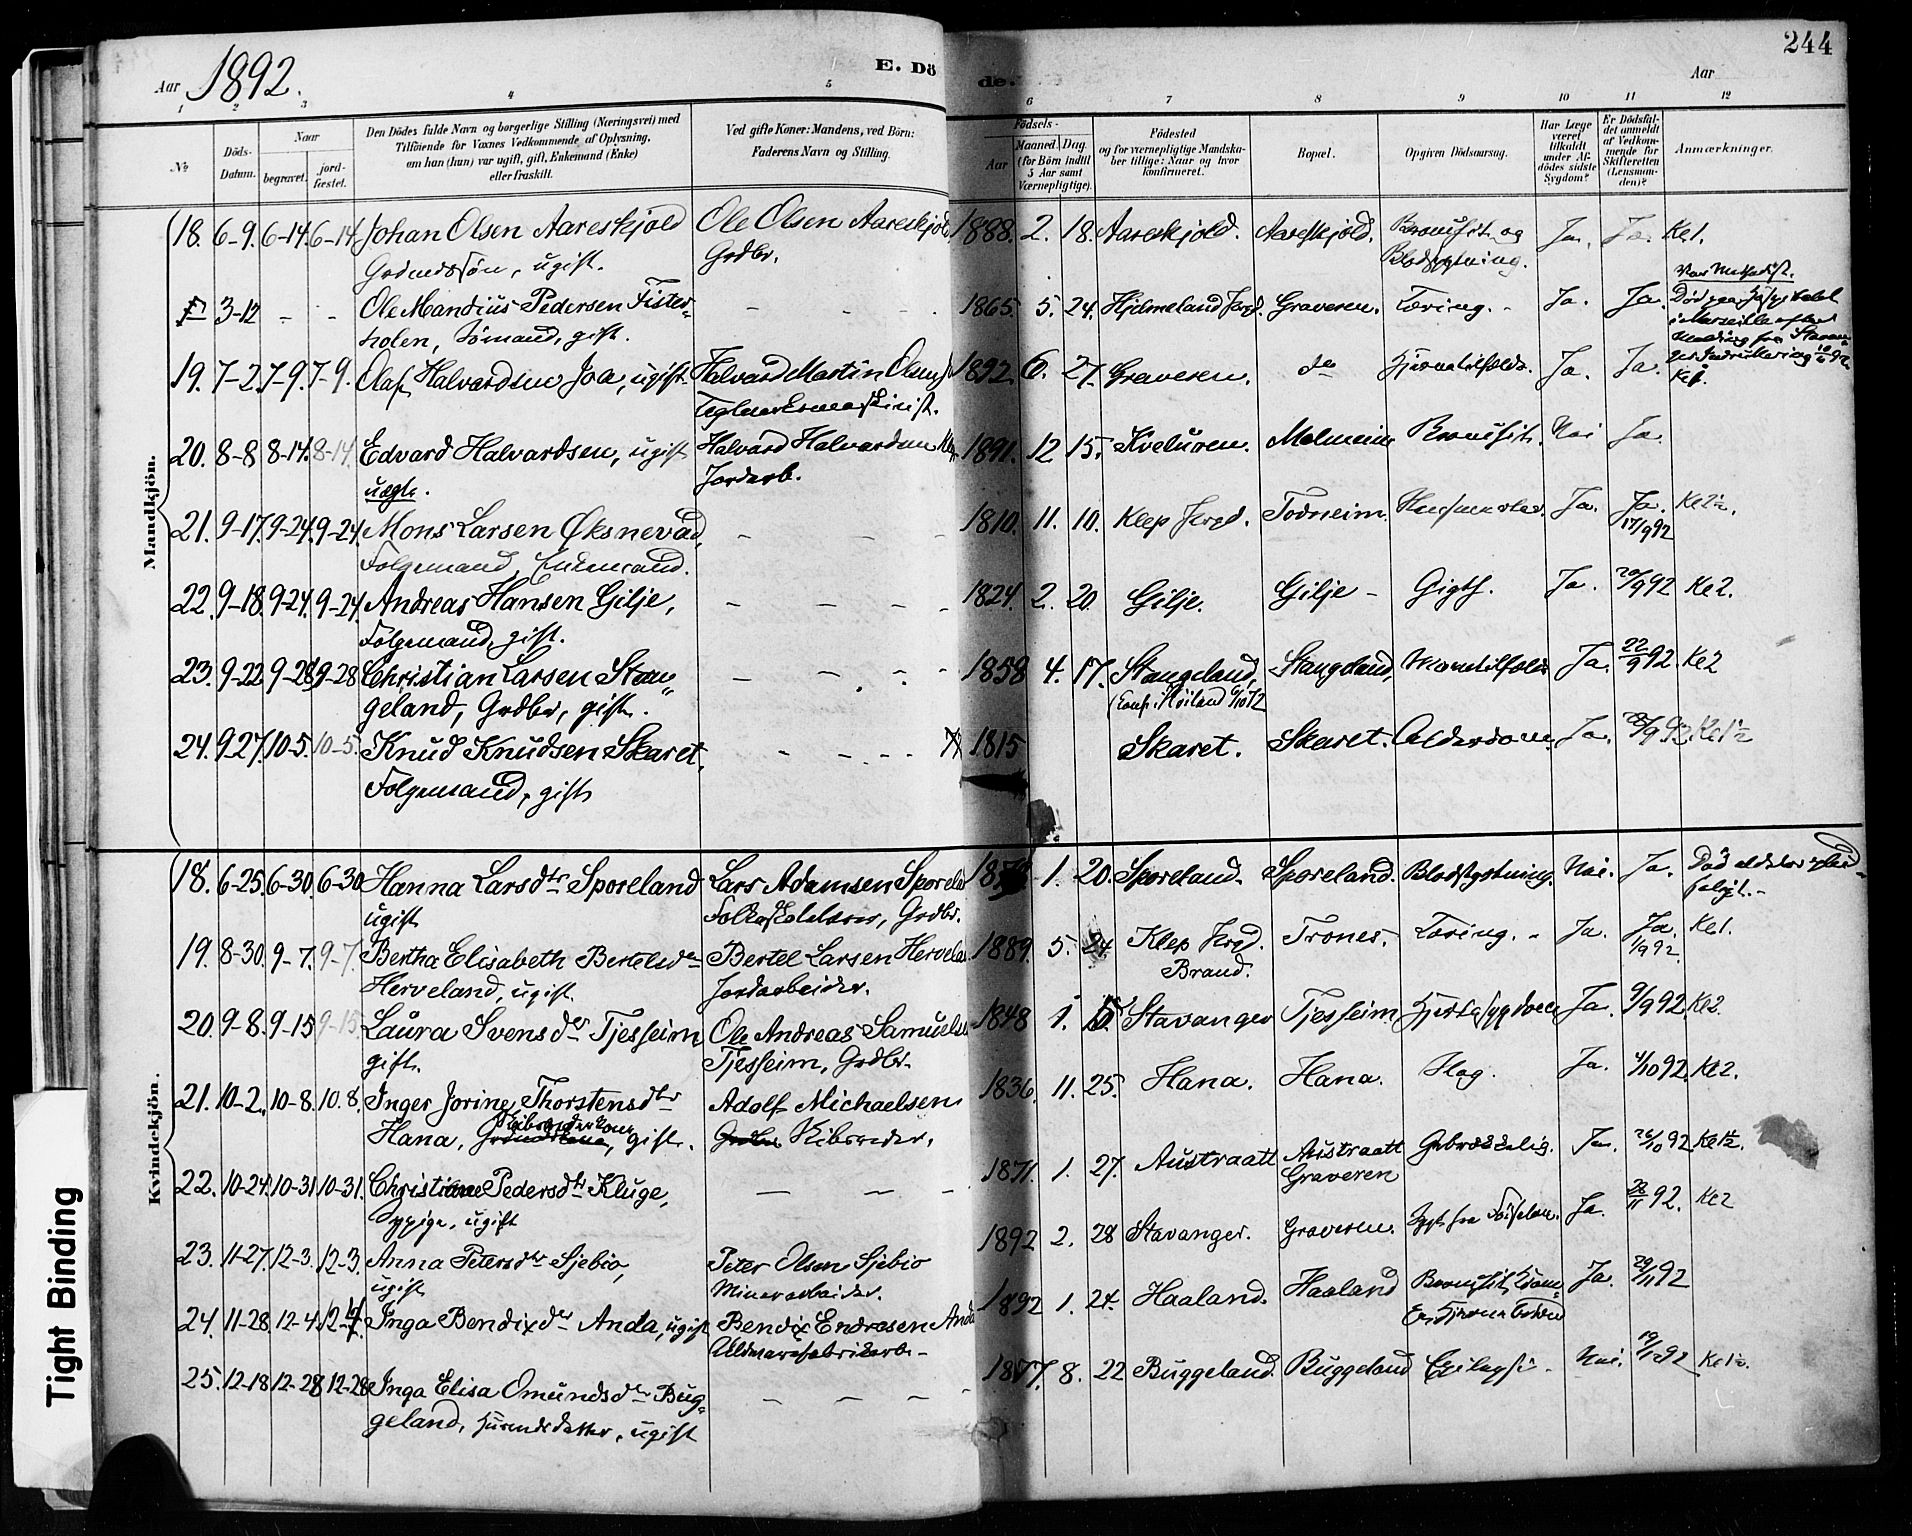 244
1892.
E. Dö
de.
Aar
Aar
1 2 3 4 5 6 7 8 9 10 11 12
No
Döds-Datum.
Naar
begravet.
jord-fæstet.
Den Dödes fulde Navn og borgerlige Stilling (Næringsvei) med
Tilföiende for Voxnes Vedkommende af Oplysning,
om han (hun) var ugift, gift, Enkemand (Enke)
eller fraskilt.
Ved gifte Koner: Mandens, ved Börn:
Faderens Navn og Stilling.
Födsels-
Aar
Maaned. Dag.
(for Börn indtil
5 Aar samt
Værnepligtige).
Födested
og for værnepligtige Mandska-
ber tillige: Naar og hvor
konfirmeret.
Bopæl.
Opgiven Dödsaarsag.
Har Læge
været
tilkaldt
under Af-
dödes sidste
Sygdom?
Er Dödsfal-
det anmeldt
af Vedkom-
mende for
Skifteretten
(Lensman-
den)?
Anmærkninger.
Mandkjön.
18. 6-9. 6-14. 6-14. Johan Olsen Aareskjold Ole Olsen Aareskjold 1888. 2. 18. Aareskjold. Aareskjold. Ja. Ja. Ke1.
ugift. Grdbr.
3-12 - - Ole Mandius Pedersen Fister- - - - 1865. 5. 24. Hjelmeland Graveren. Tæring. Ja. Ja.
Var Methodist.
holen, Sömand, gift.
19. 7-2. 7-9. 7-9. Olaf Halvardsen Joa, ugift. Halvard Martin Olsen 1892. 6. 27. Graveren. do Ja. Ja. Ke1.
20. 8-8 8-14. 8-14. Edvard Halvardsen, ugift Halvard Halvardsen 1891. 12 15. Kveluren. Malmeim Nei Ja.
uægte. Jordarb.
21. 9-17. 9-24. 9-24. Mons Larsen Øksnevad, - - - 1810. 11. 10. Klep Todneim. Ja. Ja. 17/9 92
Folgemand, Enkemand.
22. 9-18. 9-24. 9-24. Andreas Hansen Gilje, - - - - 1824. 2. 20. Gilje. Gilje - Gigtf. Ja. 20/9 92 Ke2.
Folgemand, gift.
23. 9-22 9-28 9-28 Christian Larsen Stan- - - - - 1858 4. 17. Stangeland, Stangeland, Ja. 22/9 92. Ke2
geland, Grdbr, gift.
24. 9-27. 10-5. 10-5. Knud Knudsen Skaret, - - - 1815 Skaret. Skaret. Alderdom Ja. Ke1½
Folgemand, gift
Kvindekjön.
18. 6-25. 6-30. 6-30 Hanna Larsdtr Sporeland Lars Adamsen 1. 20. Sporeland. Sporeland. Blodstyrtning. Nei. Ja.
ugift Grdbr.
19. 8-30. 9-7. 9-7. Bertha Elisabeth Bertelsdtr Bertel Larsen 1889. 5 24 Klep Trones. Tæring. - Ja. Ja. 1/9 92. Ke1.
Herveland, ugift. Jordarbeider. Braud.
20. 9-8. 9-15 9-15 Laura Svensdr Tjessem Ole Andreas 1848 1. Stavanger Tjessem Ja. 9/9 92. Ke2.
gift. Tjessem, Grdbr.
21. 10-2. 10-8. 10.8. Inger Jorine Thorstensdtr Adolf Michaelsen 1836. 11. 25. Hana. Hana. Slag. Ja. 4/10 92. Ke2.
Hana, gift.
22. 10-24. 10-31. 10-31. Christiane Pedersdtr Kluge, - - - 1871. 1. 27. Austraatt Austraatt Ja. 26/10 92 Ke1½.
Graveren
Sypige, ugift
23. 11-27. 12-3. 12-3. Anna Petersdtr Sjebio, Peter Olsen Sjebio 1892 2. 28 Stavanger. Graveren. Ja. 28/11 92. Ke2
ugift Minerarbeider.
24. 11-28. 12-4. Inga Bendixdtr Anda, ugift Bendix Endresen Anda 1892 1. 24. Haaland. Haaland Ja. 29/11 92
25. 12-18 12-28 12-28 Inga Elisa Omundsdtr Bug- - - - - 1877. 8. 22 Buggeland. Buggeland Nei. 19/12 92
geland, ugift
Tight Binding